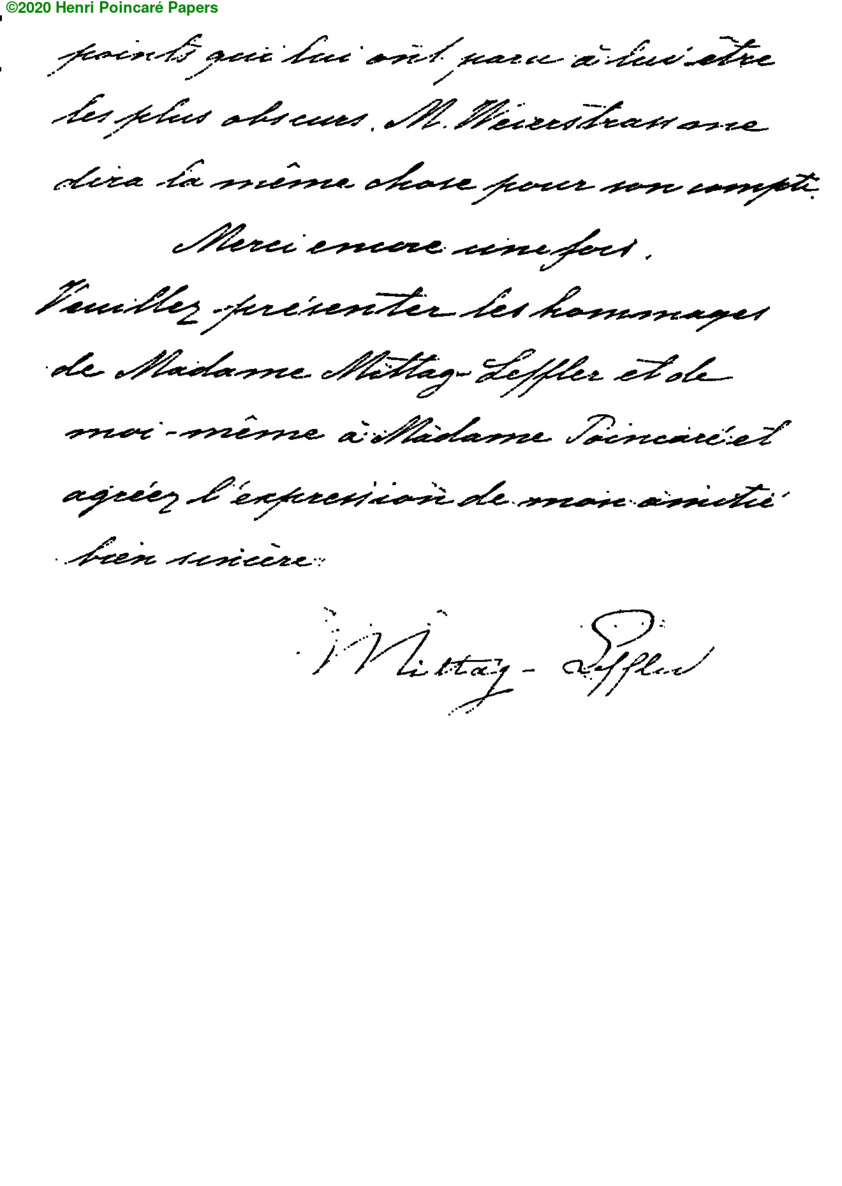 ©2020 Henri Poincaré Papers
points qui lui ont paru à lui être
les plus obscurs. M. Weierstrass me
dira la même chose pour son compte.
Merci encore une fois.
Veuillez présenter les hommages
de Madame Mittag-Leffler et de
moi-même à Madame Poincaré et
agréez l'expression de mon amitié
bien sincère
Mittag-Leffler